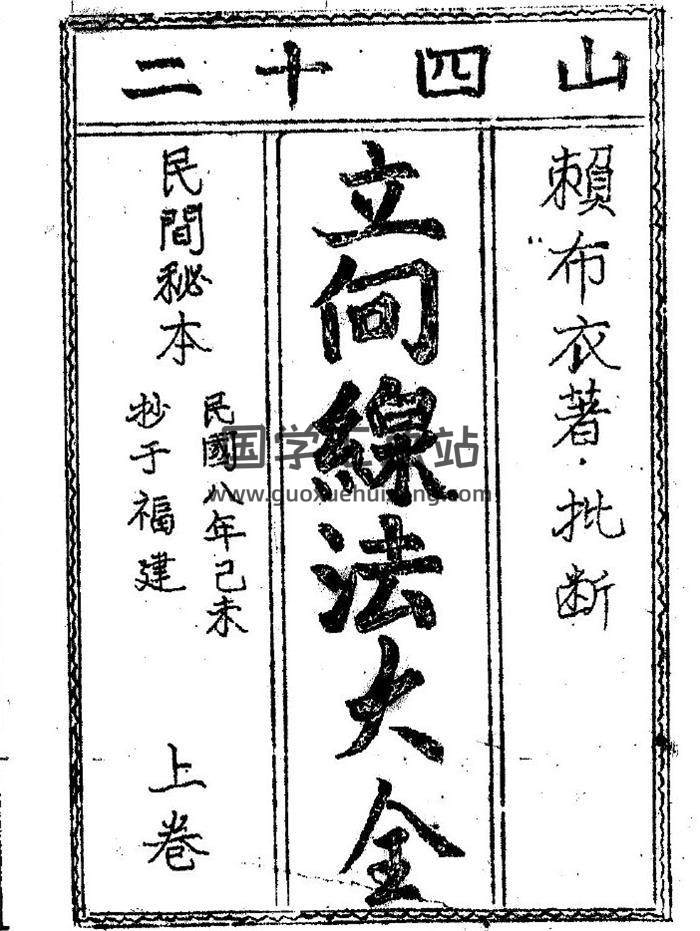 二十四山
賴布衣著·批断
立向線法大全
民間秘本
民國八年己未
抄于福建
上卷
国学 站